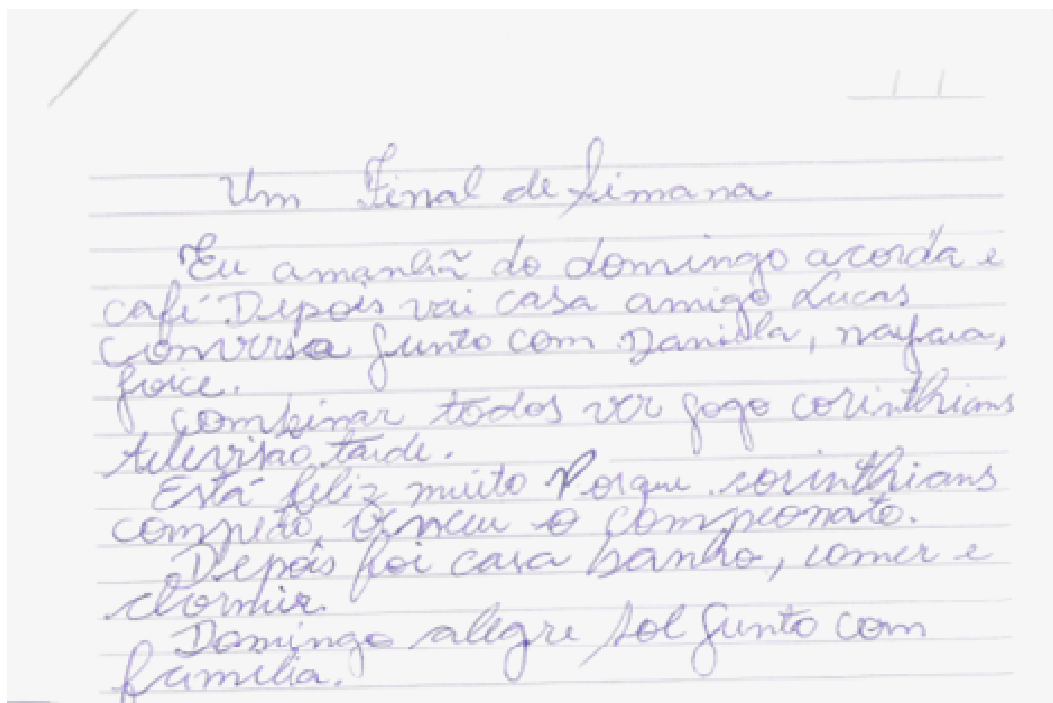 Um Final de Simana
Eu amanhã do domingo acorda e
café Depois vai casa amigo Lucas
conversa junto com Daniela,
Joice.
combinar todos ver jogo corinthians
televisão tarde.
Está feliz muito Porque corinthians
venceu o campeonato.
Depois foi casa banho, comer e
dormir.
Domingo alegre sol junto com
familia.